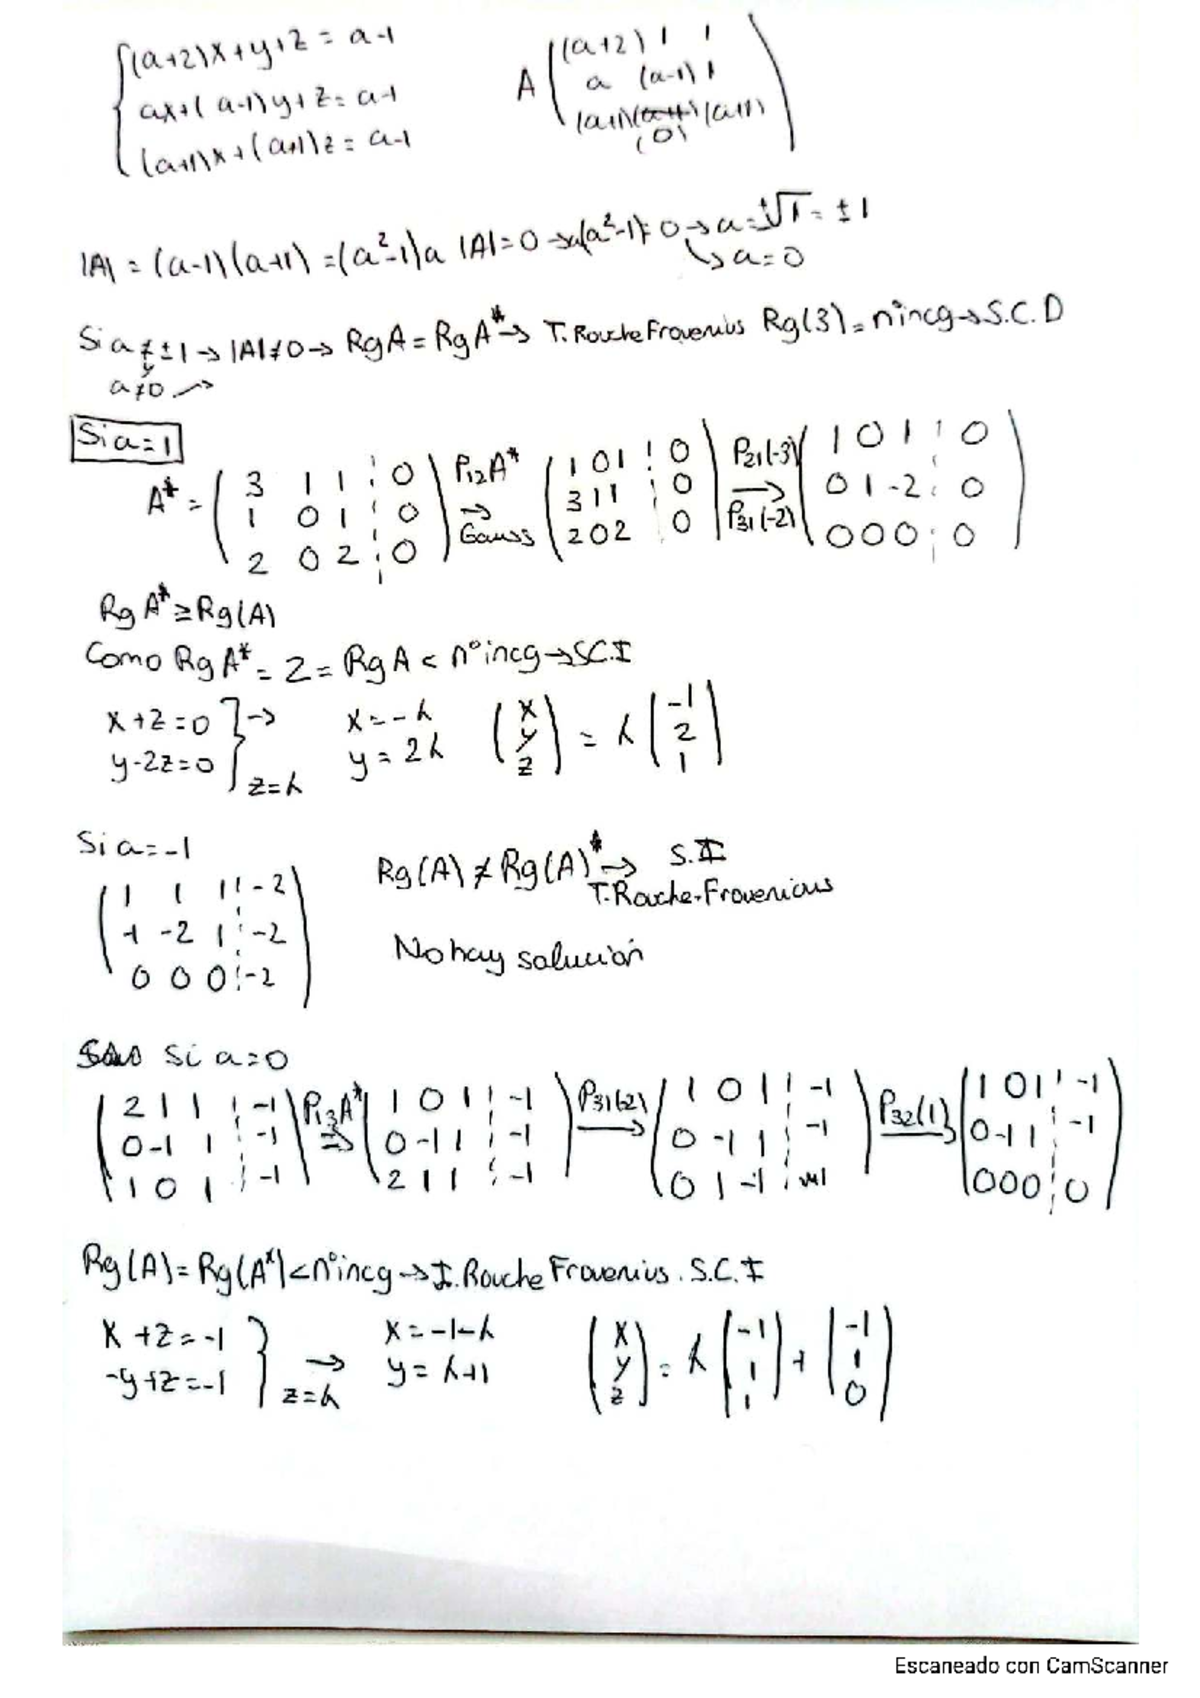 (a+2)x+y+z = a-1
ax+(a-1)y+z = a-1
(a+1)x+(a+1)z = a-1
A
(a+2) 1 1
a (a-1) 1
(a+1) (0) (a+1)
|A| = (a-1)(a+1) = (a²-1)a |A|=0 → a(a²-1)=0 → a=±√1 = ±1
↳ a=0
Si a ≠ ±1 → |A|≠0 → RgA = RgA* → T. Rouche Frovenius Rg(3) = nºincg → S.C.D
y
a≠0
Si a=1
A* =
3 1 1 ¦ 0
1 0 1 ¦ 0
2 0 2 ¦ 0
P12A*
→
Gauss
1 0 1 ¦ 0
3 1 1 ¦ 0
2 0 2 ¦ 0
P21(-3)
→
P31(-2)
1 0 1 ¦ 0
0 1 -2 ¦ 0
0 0 0 ¦ 0
Rg A* ≥ Rg(A)
Como Rg A* = 2 = Rg A < nº incg → SC.I
x+z=0
y-2z=0
→
z=λ
x=-λ
y=2λ
x
y
z
= λ
-1
2
1
Si a=-1
1 1 1 ¦ -2
-1 -2 1 ¦ -2
0 0 0 ¦ -2
Rg(A) ≠ Rg(A)* → S.I
T.Rouche-Frovenious
No hay solución
Si a=0
2 1 1 ¦ -1
0 -1 1 ¦ -1
1 0 1 ¦ -1
P13A*
⇒
1 0 1 ¦ -1
0 -1 1 ¦ -1
2 1 1 ¦ -1
P31(-2)
→
1 0 1 ¦ -1
0 -1 1 ¦ -1
0 1 -1 ¦ 1
P32(1)
→
1 0 1 ¦ -1
0 -1 1 ¦ -1
0 0 0 ¦ 0
Rg(A) = Rg(A*) < nºincg → T.Rouche Frovenius. S.C.I
x+z=-1
-y+z=-1
→
z=λ
x=-1-λ
y=λ+1
x
y
z
= λ
-1
1
1
+
-1
1
0
Escaneado con CamScanner